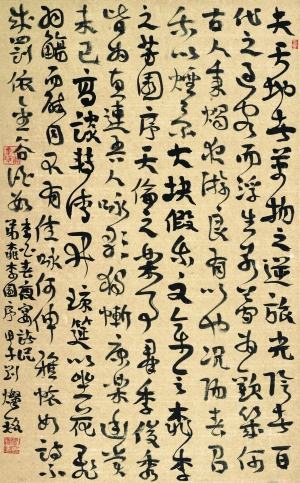 夫天地者萬物之逆旅光陰者百
代之過客而浮生若夢為歡幾何
古人秉燭夜游良有以也況陽春召
我以煙景大塊假我以文章會桃李
之芳園序天倫之樂事群季俊秀
皆為惠連吾人詠歌獨慚康樂幽賞
未已高談轉清開瓊筵以坐花飛
羽觴而醉月不有佳詠何伸雅懷如詩不
成罰依金谷酒數
李白春夜宴諸從
弟桃李園序甲子劉燦銘